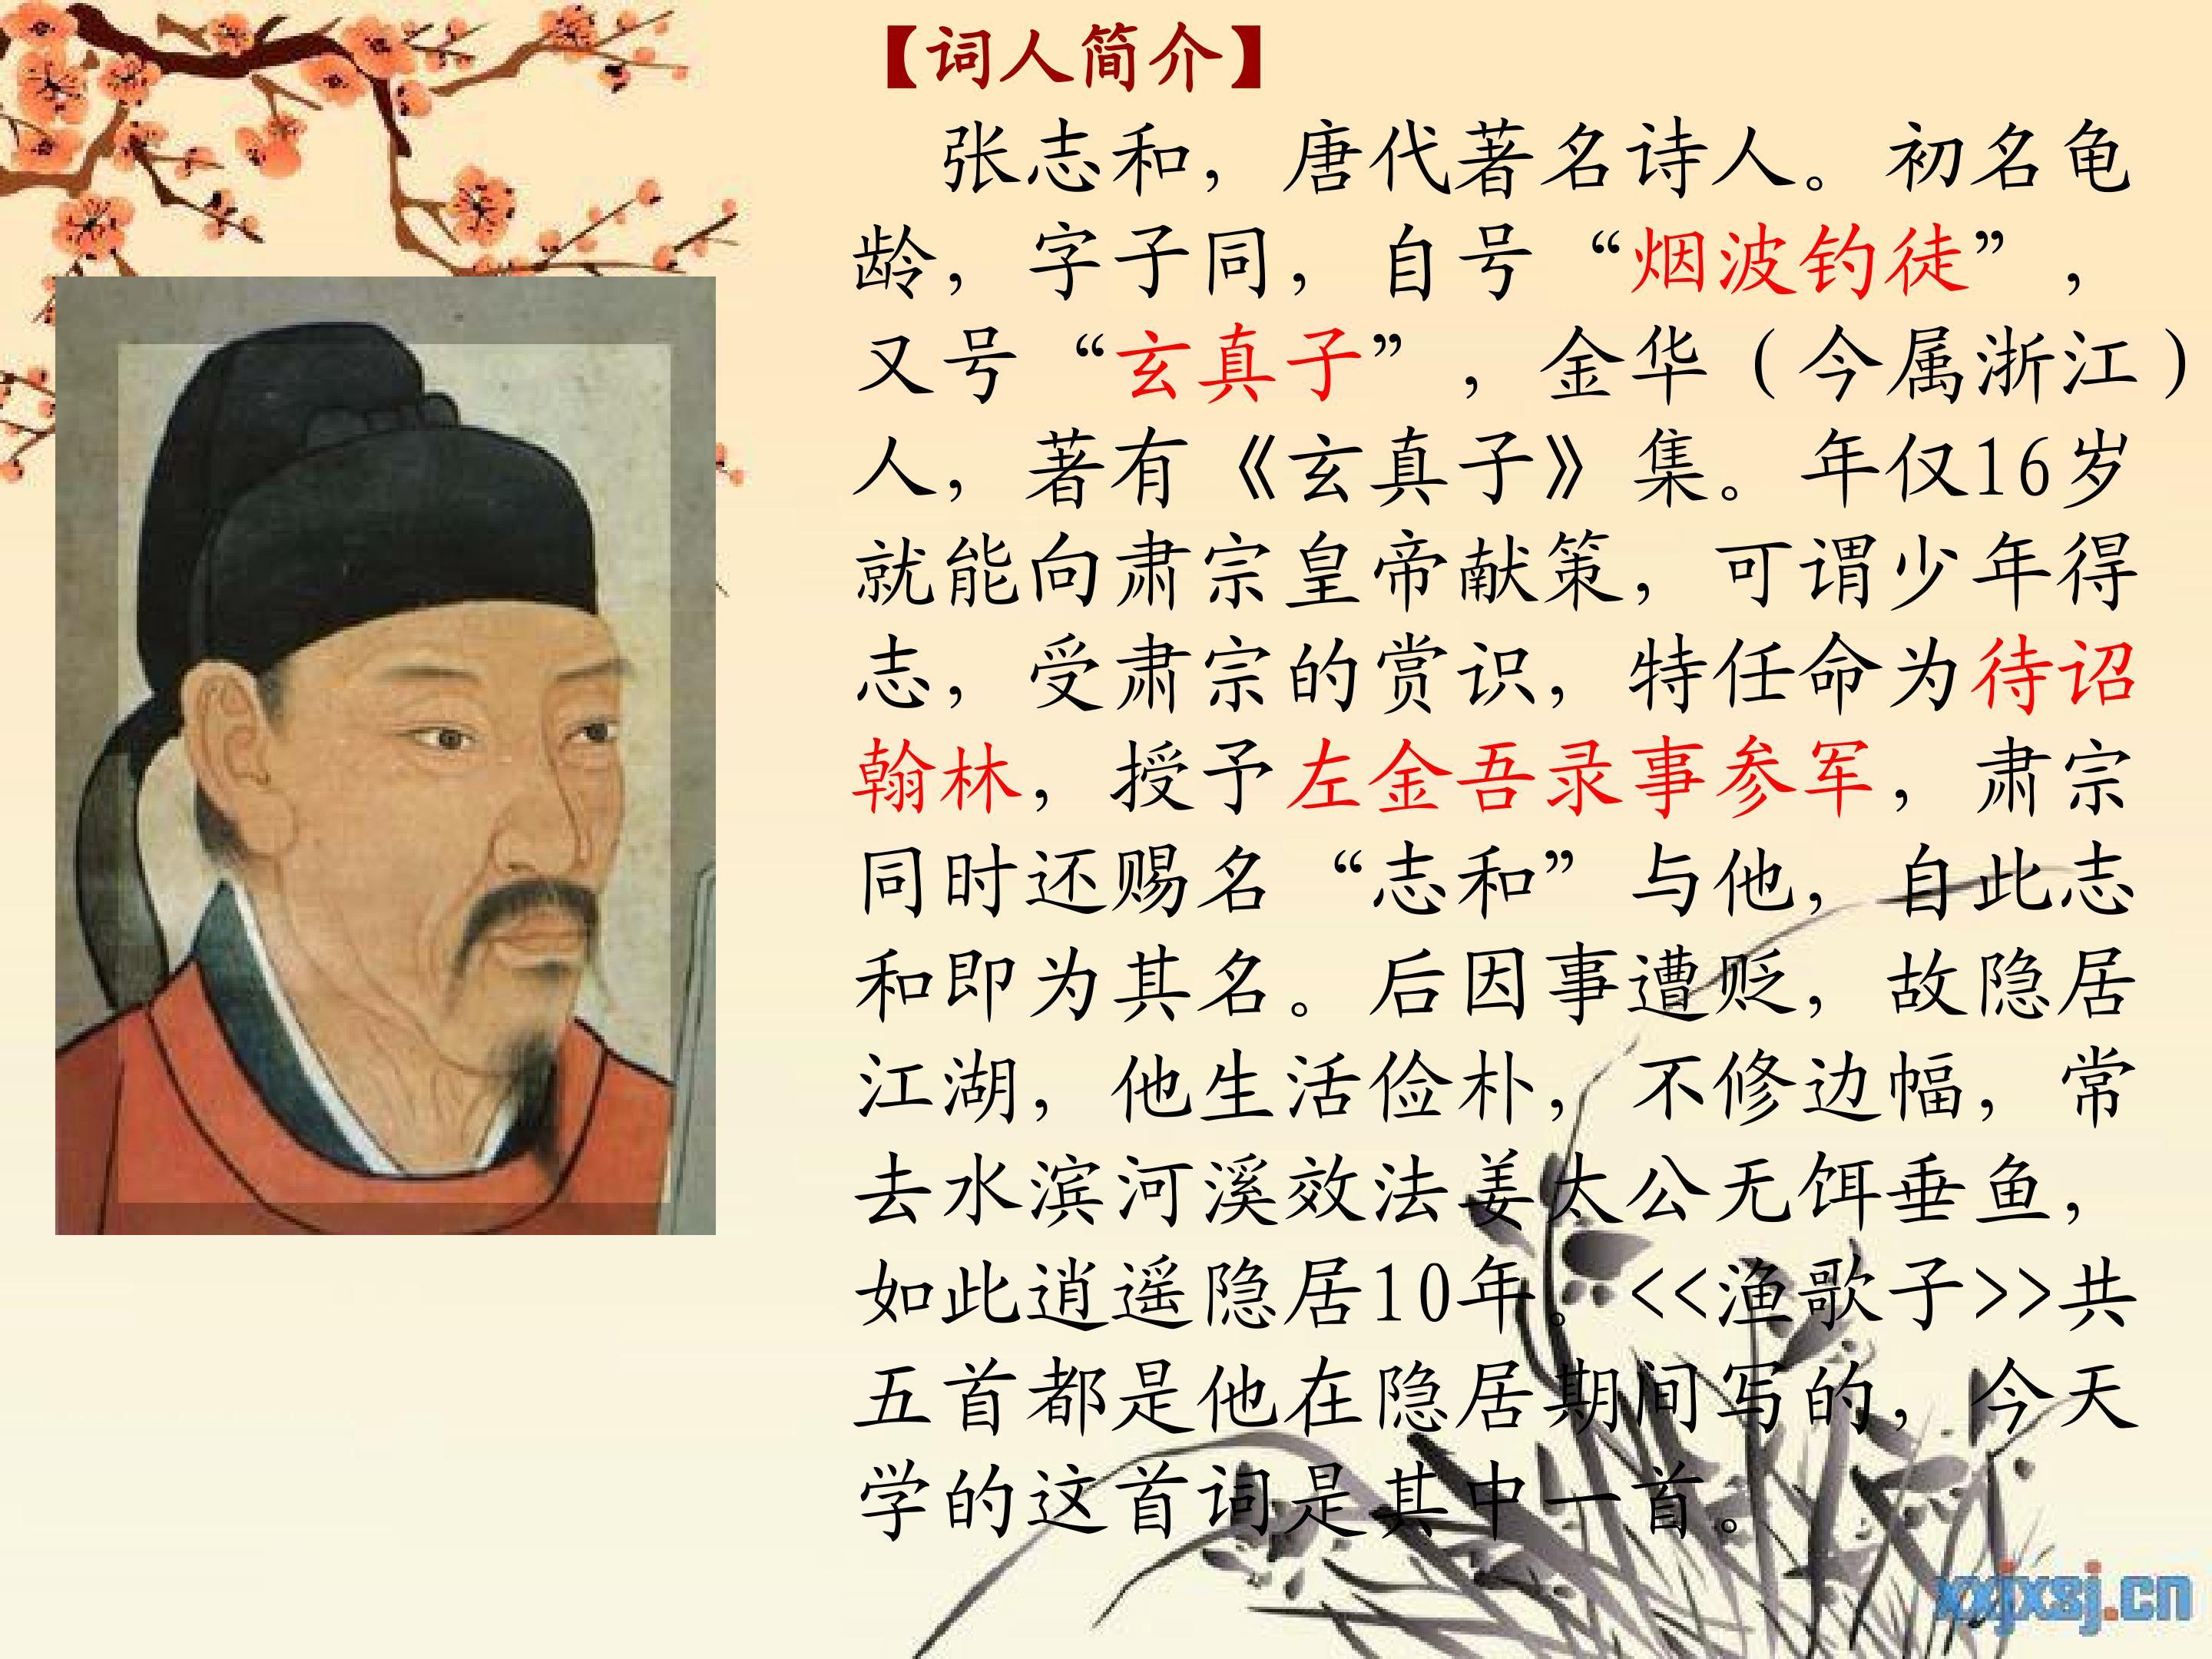 【词人简介】
张志和，唐代著名诗人。初名龟
龄，字子同，自号“烟波钓徒”，
又号“玄真子”，金华（今属浙江）
人，著有《玄真子》集。年仅16岁
就能向肃宗皇帝献策，可谓少年得
志，受肃宗的赏识，特任命为待诏
翰林，授予左金吾录事参军，肃宗
同时还赐名“志和”与他，自此志
和即为其名。后因事遭贬，故隐居
江湖，他生活俭朴，不修边幅，常
去水滨河溪效法姜太公无饵垂鱼，
如此逍遥隐居10年。<<渔歌子>>共
五首都是他在隐居期间写的，今天
学的这首词是其中一首。
xxjxsj.cn